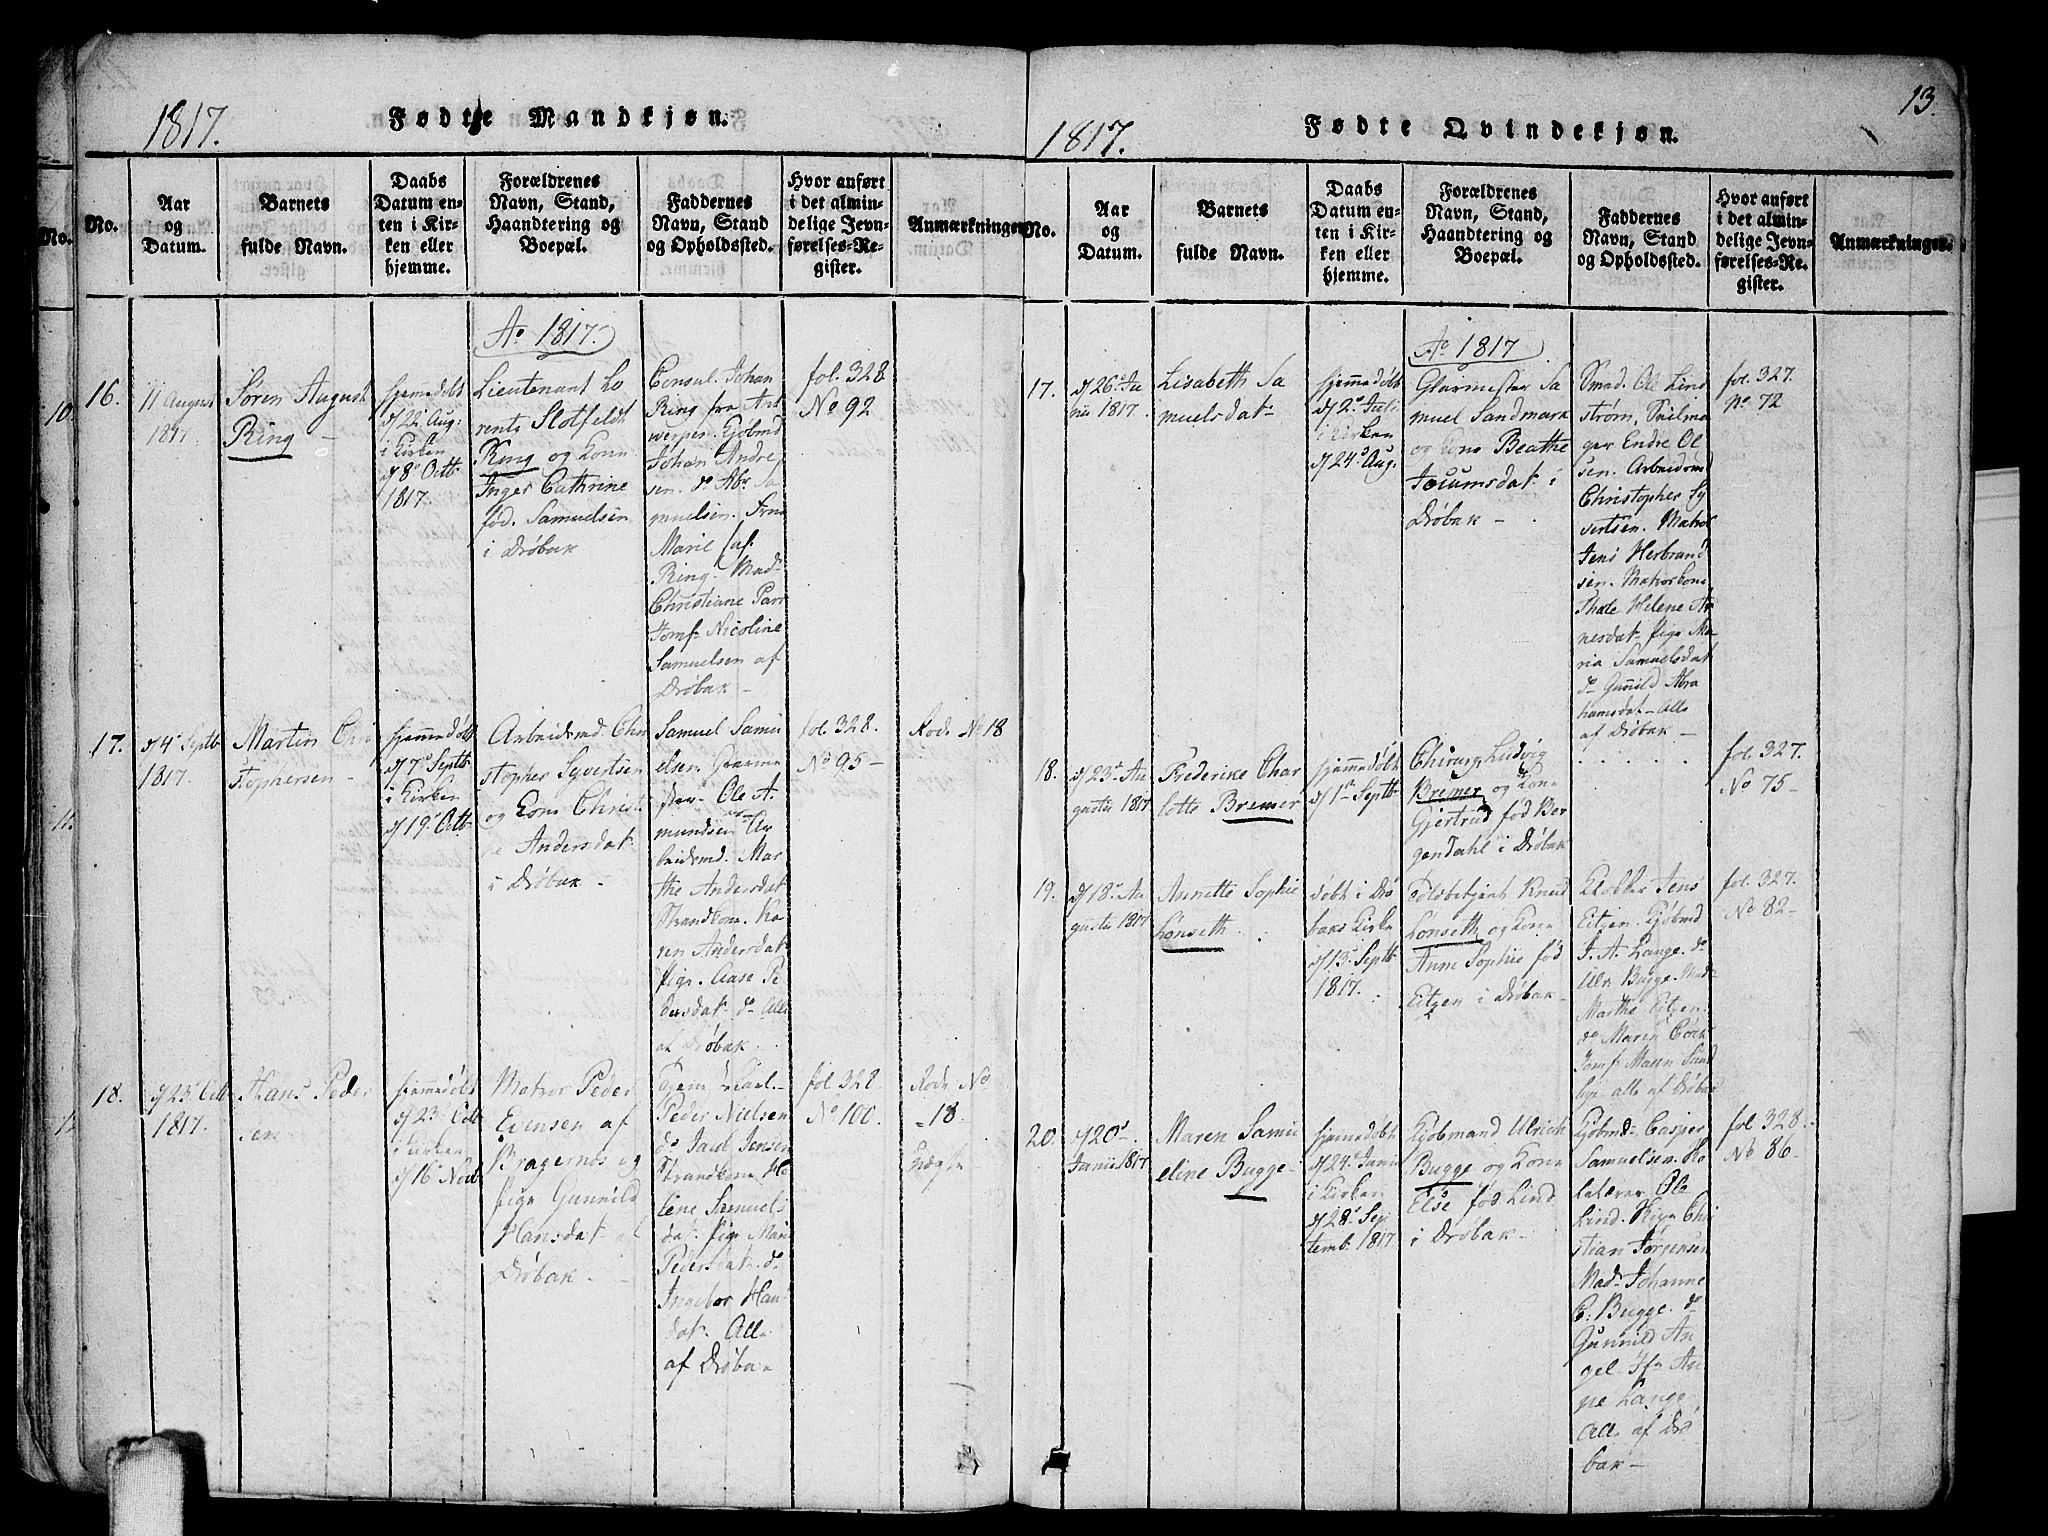 1817.
Fødte Mandkjøn.
No.
Aar
og
Datum.
Barnets
fulde Navn.
Daabs
Datum en-
ten i Kir-
ken eller
hjemme.
Forældrenes
Navn, Stand,
Haandtering og
Boepæl.
Faddernes
Navn, Stand
og Opholdssted.
Hvor anført
i det almin-
delige Jevn-
førelses-Re-
gister.
Anmærkninger.
Ao 1817.
16.
11 August
1817.
Søren August
Ring -
hjemmedøbt
d 22 Aug:
i Kirken
d 8de Octb
1817.
Lieutenant Lo
rents Slotfeldt
Ring og Kone
Inger Cathrine
fød. Samuelsen
i Drøbak
Consul. Johan
Ring fra Ant
werpen. Kjøbmd
Johan Andre
sen. do Abr. Sa
muelsen. Frue
Marie
Ring. Mad
Christiane Parr
Jomf. Nicoline
Samuelsen af
Drøbak -
fol. 328
No 92
17.
d 4 Septb
1817.
Martin Chri
stophersen -
hjemmedøbt
d 7 Septb
i Kirken
d 19 Octb
Arbeidsmd. Chri
stopher Syvertsen
og Kone Christ
Andersdat
i Drøbak -
Samuel Samu
elsen. Glarme
ster. Ole A.
mundsen Ar
beidsmd. Mar
the Andersdat
Strandkone. Ka
ren Andersdat
Pige. Aase Pe
dersdat. do Alle
af Drøbak.
fol. 328.
No 95 -
Rode No 18
18.
d 23 Octb
1817.
Hans Peder
sen
hjemmedøbt
d 23 Octb
i Kirken
d 16 Novb
Matros Peder
Evensen af
Bragernes og
Pige Gunnild
Hansdat af
Drøbak -
Peder Nielsen
do Jacob Jensen
Strandkone He
lene Samuels
dat. Pige Mari
Pedersdat. do
Ingebor Han
dat. Alle
af Drøbak
fol 328
No 100.
Rode No
18
uægte
13.
1817.
Fødte Qvindekjøn.
No.
Aar
og
Datum.
Barnets
fulde Navn.
Daabs
Datum en-
ten i Kir-
ken eller
hjemme.
Forældrenes
Navn, Stand,
Haandtering og
Boepæl.
Faddernes
Navn, Stand
og Opholdssted.
Hvor anført
i det almin-
delige Jevn-
førelses-Re-
gister.
Anmærkninger.
Ao 1817
17.
d 26 Ju
nii 1817.
Lisabeth Sa
muelsdat
hjemmedøbt
d 2 Juli
i Kirken
d 24 Aug.
Glarmester Sa
muel Sandmark
og Kone Beathe
Jocumsdat i
Drøbak -
Smed. Ole Lind
strøm. Seilma
ger Endre Ol
sen. Arbeidsmd
Christopher Sy
vertsen. Matros
Jens Herbrand
sen. Matroskone
Thale Helene Ar
nesdat. Pige Ma
ria Samuelsdat
do Gunild Abra
hamsdat. Alle
af Drøbak -
fol. 327.
No 72
18.
d 23 Au
gusti 1817
Frederike Char
lotte Bremer
hjemmedøbt
d 1 Septb
Chirurg. Ludvig
Bremer og Kone
Gjertrud fød Ber
gendahl i Drøbak
fol. 327.
No 75 -
19.
d 18 Au
gusti 1817
Annette Sophie
Lønseth.
døbt i Drø
baks Kirke
d 13 Septb
1817.
Toldbetjent Knud
Lønseth og Kone
Anne Sophie fød
Eitzen i Drøbak -
Klokker Jens
Eitzen. Kjøbmd
J. A. Lange. do
Ulr. Bugge. Mad
Marthe Eitzen.
do Maren Cock
Jomf. Maren Sund
bye alle af Drøbak
fol. 327.
No 82 -
20.
d 20
Junii 1817
Maren Samu
eline Bugge -
hjemmedøbt
d 24 Junii
i Kirken
d 28 Sep
temb. 1817
Kjøbmand Ulrich
Bugge og Kone
Else fød Lind
i Drøbak -
Kjøbmd. Casper
Samuelsen.
Ole
Lind. Chri
stian Jørgensen
Mad. Johanne
C. Bugge. do
Gunnild An
gel. Jfr. An
ne Lange
Alle af Drø
bak -
fol 328.
No 86 -